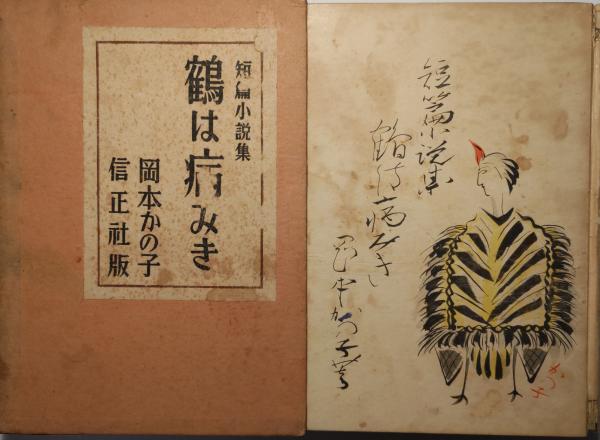 短篇小説集
鶴は病みき
岡本かの子
信正社版
短篇小説集
鶴は病みき
岡本かの子著